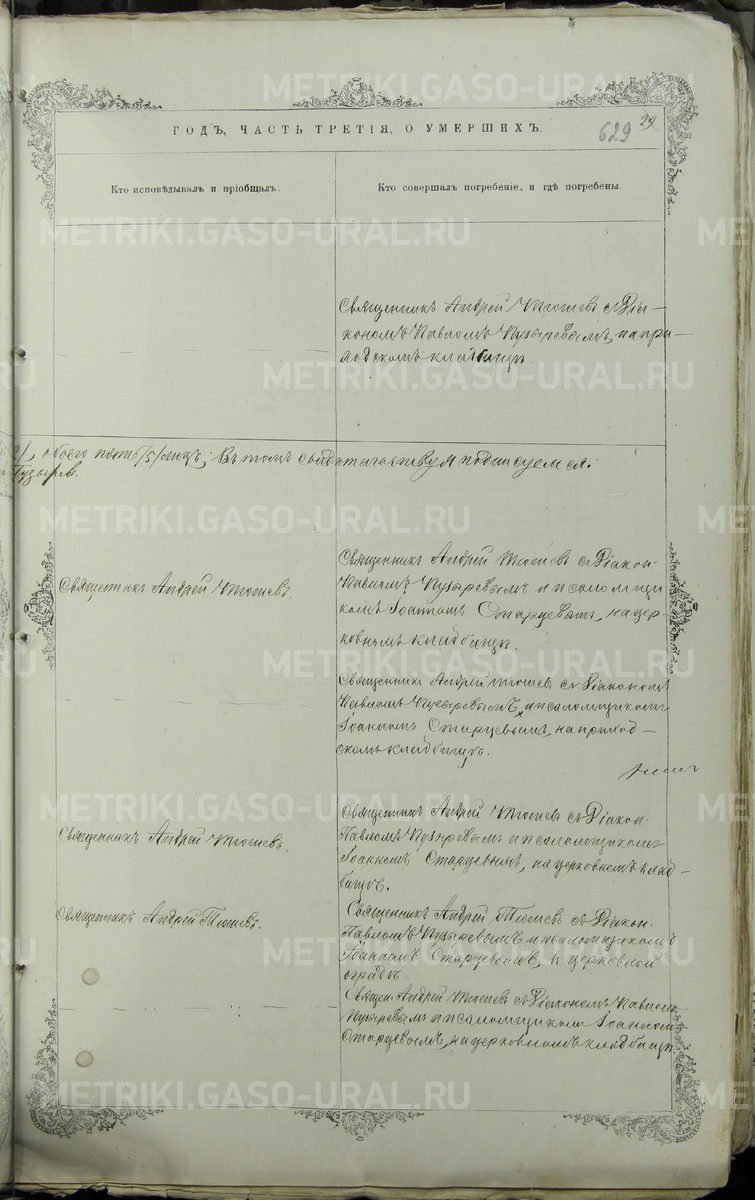 ГОДЪ, ЧАСТЬ ТРЕТІЯ, О УМЕРШИХЪ.
629 29
Кто исповѣдывалъ и пріобщалъ.
Кто совершалъ погребеніе, и гдѣ погребены.
METRIKI.GASO-URAL.RU
Священникъ Андрей съ Діа-
кономъ Павломъ Пузыревымъ, на при-
ходскомъ кладбищѣ.
обоего пять /5/ лицъ; Въ томъ свидѣтельствуя подписуемся:
Пузыревъ
Священникъ Андрей
Священникъ Андрей съ Діакон.
Павломъ Пузыревымъ и псаломщи-
комъ Іоанномъ Старцевымъ, на цер-
ковномъ кладбищѣ.
Священникъ Андрей съ Діакономъ
Павломъ Пузыревымъ, и псаломщикомъ
Іоанномъ Старцевымъ, на приход-
скомъ кладбищѣ.
Священникъ Андрей
Священникъ Андрей съ Діакон.
Павломъ Пузыревымъ и псаломщикомъ
Іоанномъ Старцевымъ, на церковномъ клад-
бищѣ.
Священникъ Андрей
Священникъ Андрей съ Діакон.
Павломъ Пузыревымъ и псаломщикомъ
Іоанномъ Старцевымъ, въ церковной
оградѣ.
Священ. Андрей съ Діакономъ Павломъ
Пузыревымъ и псаломщикомъ Іоанномъ
Старцевымъ, на церковномъ кладбищѣ.